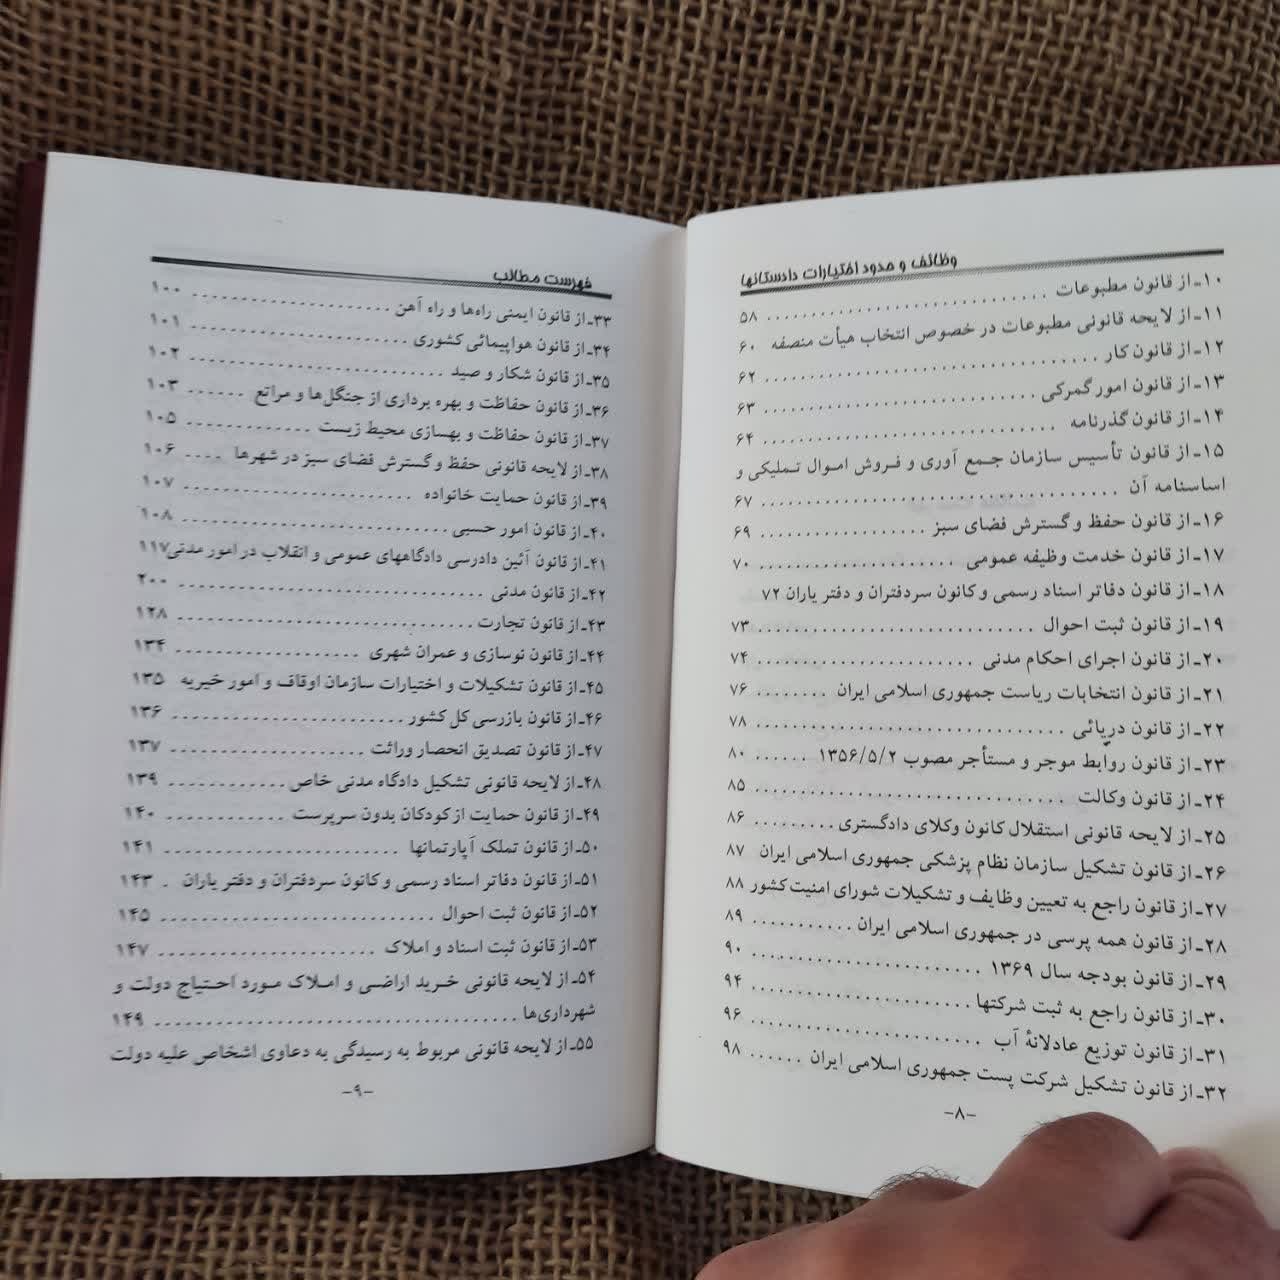 وظائف و حدود اختیارات دادستانها
۱۰ـ از قانون مطبوعات .................... ۵۸
۱۱ـ از لایحه قانونی مطبوعات در خصوص انتخاب هیأت منصفه ۶۰
۱۲ـ از قانون کار .................... ۶۲
۱۳ـ از قانون امور گمرکی .................... ۶۳
۱۴ـ از قانون گذرنامه .................... ۶۴
۱۵ـ از قانون تأسیس سازمان جمع آوری و فروش اموال تملیکی و
اساسنامه آن .................... ۶۷
۱۶ـ از قانون حفظ و گسترش فضای سبز .................... ۶۹
۱۷ـ از قانون خدمت وظیفه عمومی .................... ۷۰
۱۸ـ از قانون دفاتر اسناد رسمی و کانون سردفتران و دفتر یاران ۷۲
۱۹ـ از قانون ثبت احوال .................... ۷۳
۲۰ـ از قانون اجرای احکام مدنی .................... ۷۴
۲۱ـ از قانون انتخابات ریاست جمهوری اسلامی ایران ........ ۷۶
۲۲ـ از قانون دریائی .................... ۷۸
۲۳ـ از قانون روابط موجر و مستأجر مصوب ۱۳۵۶/۵/۲ ...... ۸۰
۲۴ـ از قانون وکالت .................... ۸۵
۲۵ـ از لایحه قانونی استقلال کانون وکلای دادگستری ......... ۸۶
۲۶ـ از قانون تشکیل سازمان نظام پزشکی جمهوری اسلامی ایران ۸۷
۲۷ـ از قانون راجع به تعیین وظایف و تشکیلات شورای امنیت کشور ۸۸
۲۸ـ از قانون همه پرسی در جمهوری اسلامی ایران ........... ۸۹
۲۹ـ از قانون بودجه سال ۱۳۶۹ .................... ۹۰
۳۰ـ از قانون راجع به ثبت شرکتها .................... ۹۴
۳۱ـ از قانون توزیع عادلانهٔ آب .................... ۹۶
۳۲ـ از قانون تشکیل شرکت پست جمهوری اسلامی ایران ...... ۹۸
-۸-
فهرست مطالب
۳۳ـ از قانون ایمنی راه‌ها و راه آهن .................... ۱۰۰
۳۴ـ از قانون هواپیمائی کشوری .................... ۱۰۱
۳۵ـ از قانون شکار و صید .................... ۱۰۲
۳۶ـ از قانون حفاظت و بهره برداری از جنگل‌ها و مراتع ...... ۱۰۳
۳۷ـ از قانون حفاظت و بهسازی محیط زیست ............. ۱۰۵
۳۸ـ از لایحه قانونی حفظ و گسترش فضای سبز در شهرها .... ۱۰۶
۳۹ـ از قانون حمایت خانواده .................... ۱۰۷
۴۰ـ از قانون امور حسبی .................... ۱۰۸
۴۱ـ از قانون آئین دادرسی دادگاههای عمومی و انقلاب در امور مدنی ۱۱۷
۴۲ـ از قانون مدنی .................... ۲۰۰
۴۳ـ از قانون تجارت .................... ۱۲۸
۴۴ـ از قانون نوسازی و عمران شهری .................... ۱۳۴
۴۵ـ از قانون تشکیلات و اختیارات سازمان اوقاف و امور خیریه ۱۳۵
۴۶ـ از قانون بازرسی کل کشور .................... ۱۳۶
۴۷ـ از قانون تصدیق انحصار وراثت .................... ۱۳۷
۴۸ـ از لایحه قانونی تشکیل دادگاه مدنی خاص ............ ۱۳۹
۴۹ـ از قانون حمایت از کودکان بدون سرپرست ............ ۱۴۰
۵۰ـ از قانون تملک آپارتمانها .................... ۱۴۱
۵۱ـ از قانون دفاتر اسناد رسمی و کانون سردفتران و دفتر یاران . ۱۴۳
۵۲ـ از قانون ثبت احوال .................... ۱۴۵
۵۳ـ از قانون ثبت اسناد و املاک .................... ۱۴۷
۵۴ـ از لایحه قانونی خرید اراضی و املاک مورد احتیاج دولت و
شهرداری‌ها .................... ۱۴۹
۵۵ـ از لایحه قانونی مربوط به رسیدگی به دعاوی اشخاص علیه دولت
-۹-